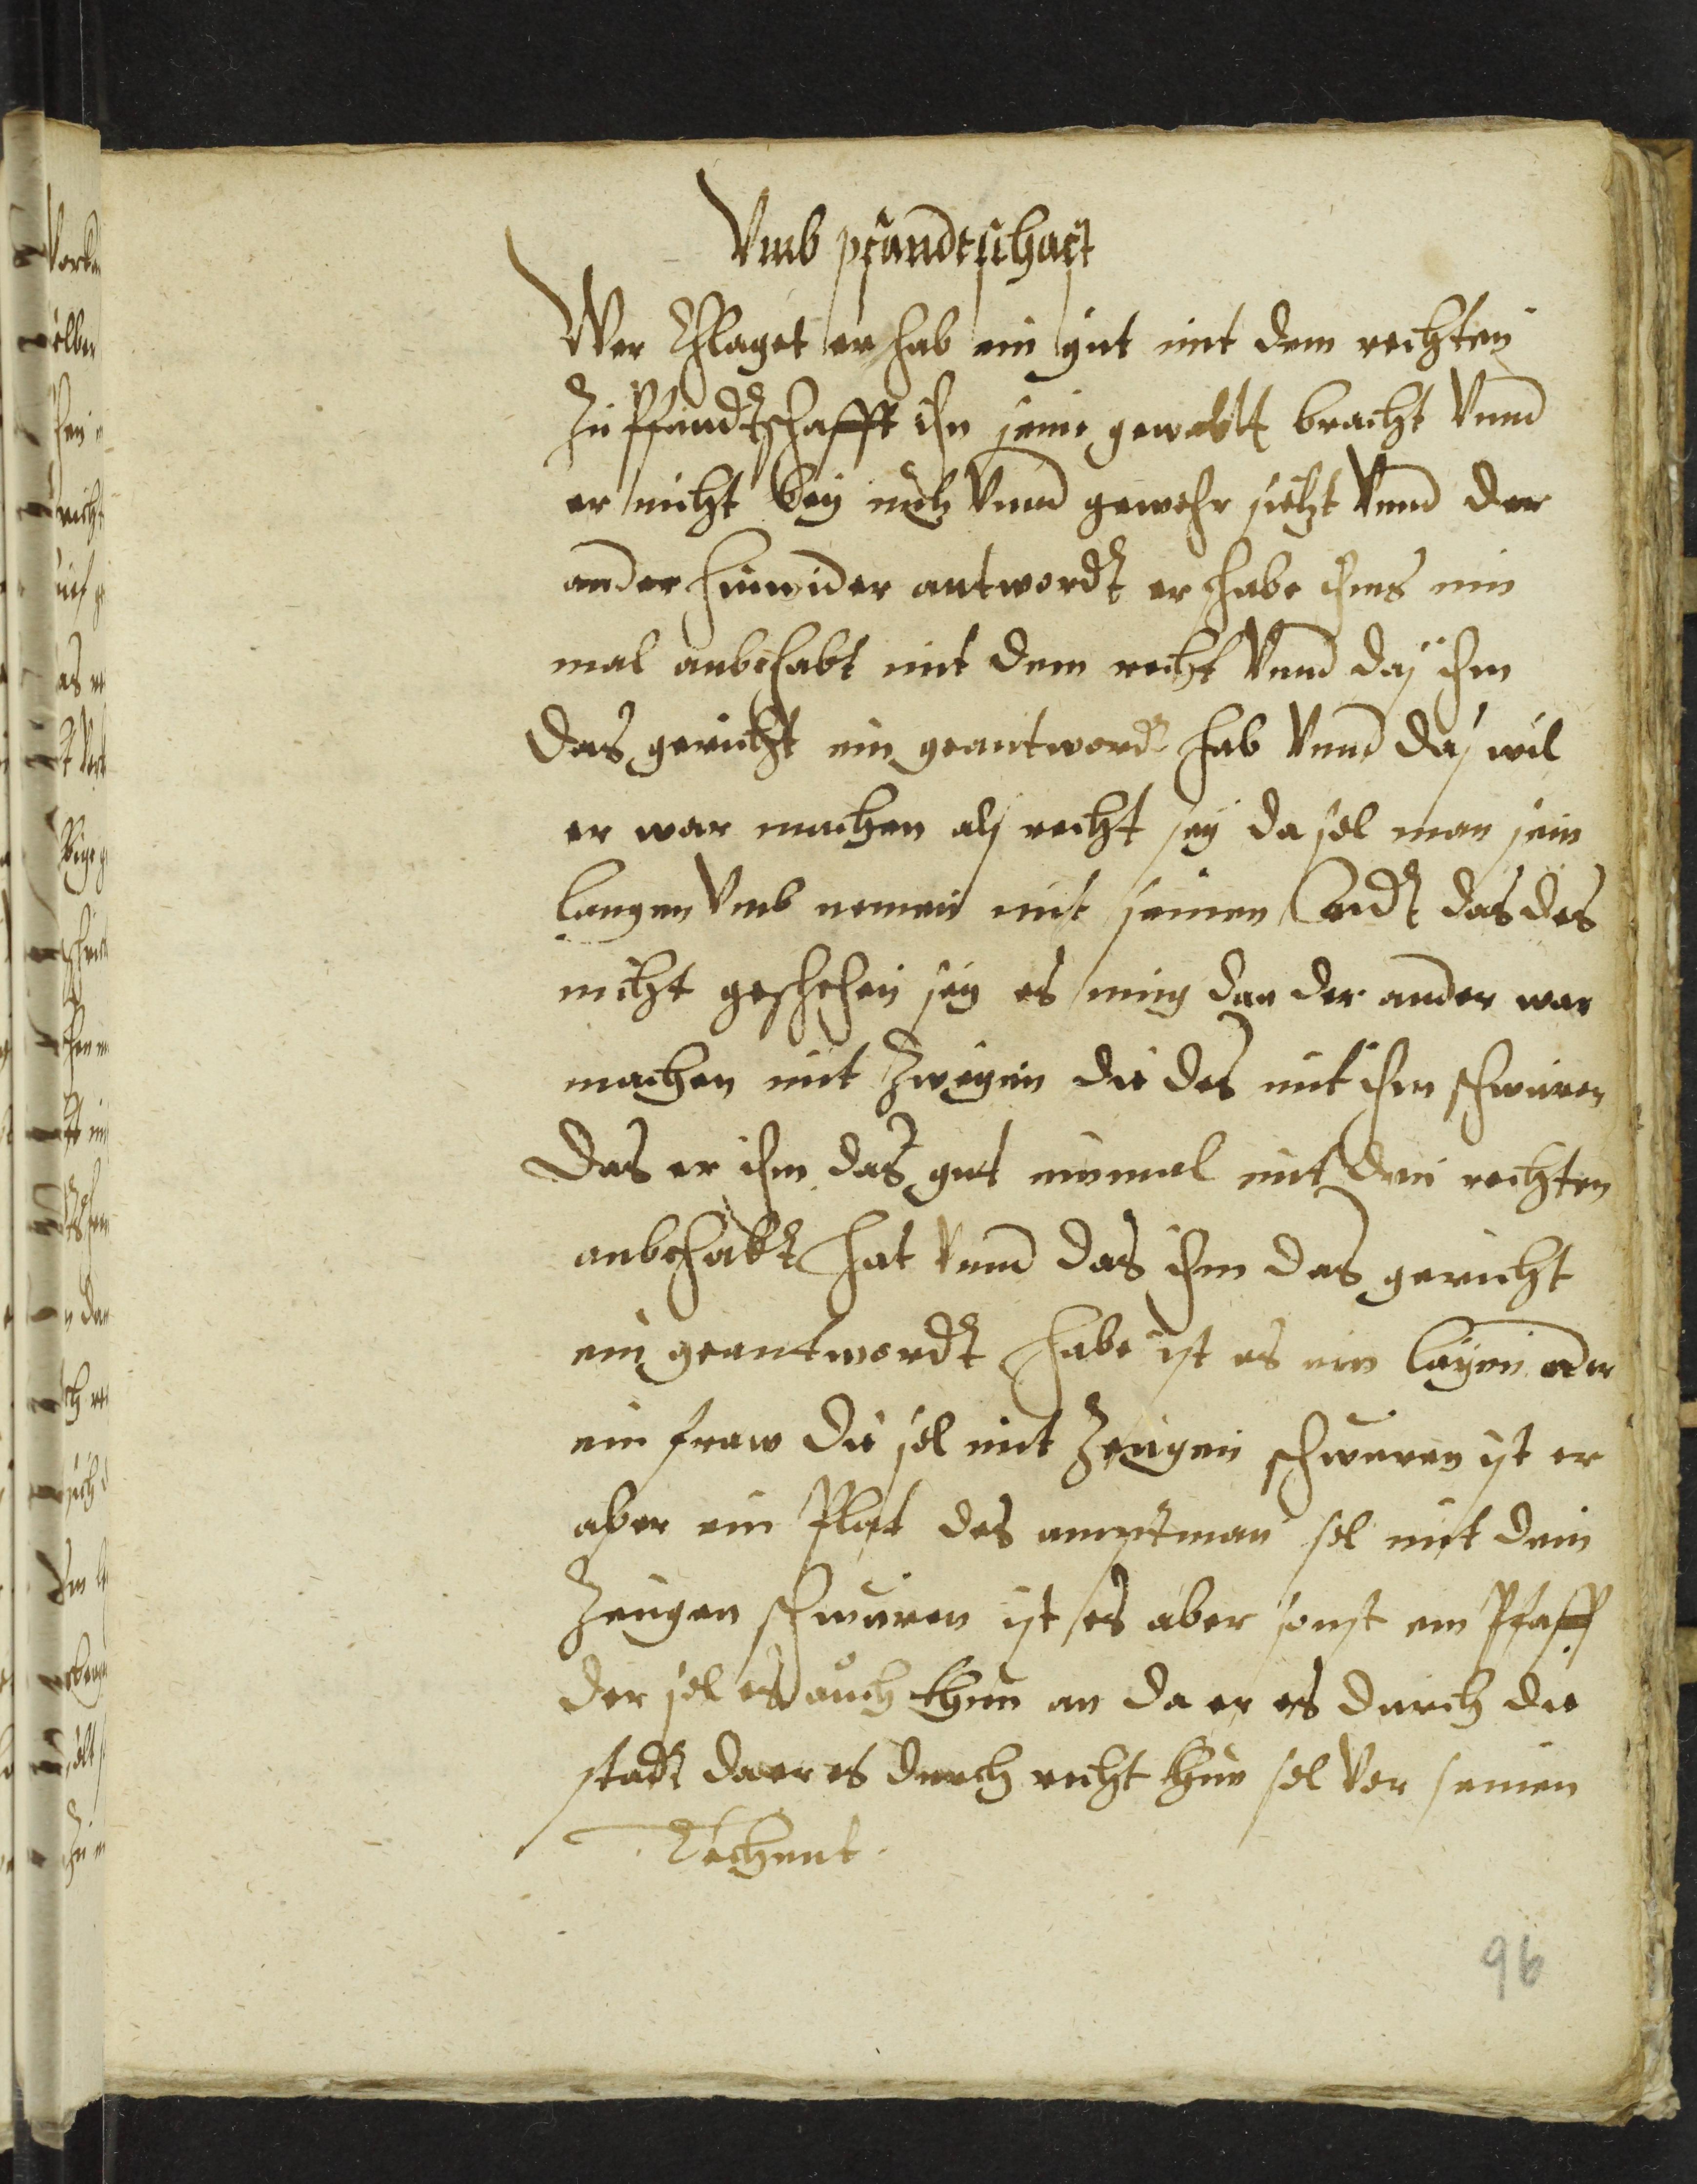 Vmb pfandtschaft
Wer Chlaget er hab ein gut mit dem rechten
zu Pfandtschafft ihn seine gewaltt bracht Vnnd
er nicht bey nutz Vnnd gewehr sietzt Vnnd der
ander hinwider antwordt er habe ihms ein
mal anbehabt mit dem recht Vnnd daß ihm
das gericht ein geantwordt hab Vnnd daß wil
er war machen alß recht sey da sol man sein
laugen Vmb nemen mit seinen Eidt das des
nicht geschehen sey es mug dan der ander war
machen mit zweyen die des mit ihm schwuren
das er ihm das gut einmal mit dem rechten
anbehabt hat Vnnd das ihm das gericht
ein geantwordt habe ist es ein layen oder
ein fraw die sol mit zeugen schwuren ist er
aber ein Plat des amptman sol mit dem
zeugen schwuren ist es aber sonst ein Pfaff
der sol es auch thun an da er es durch die
stadt da er es durch recht thun sol Vor seinen
Techent.
96